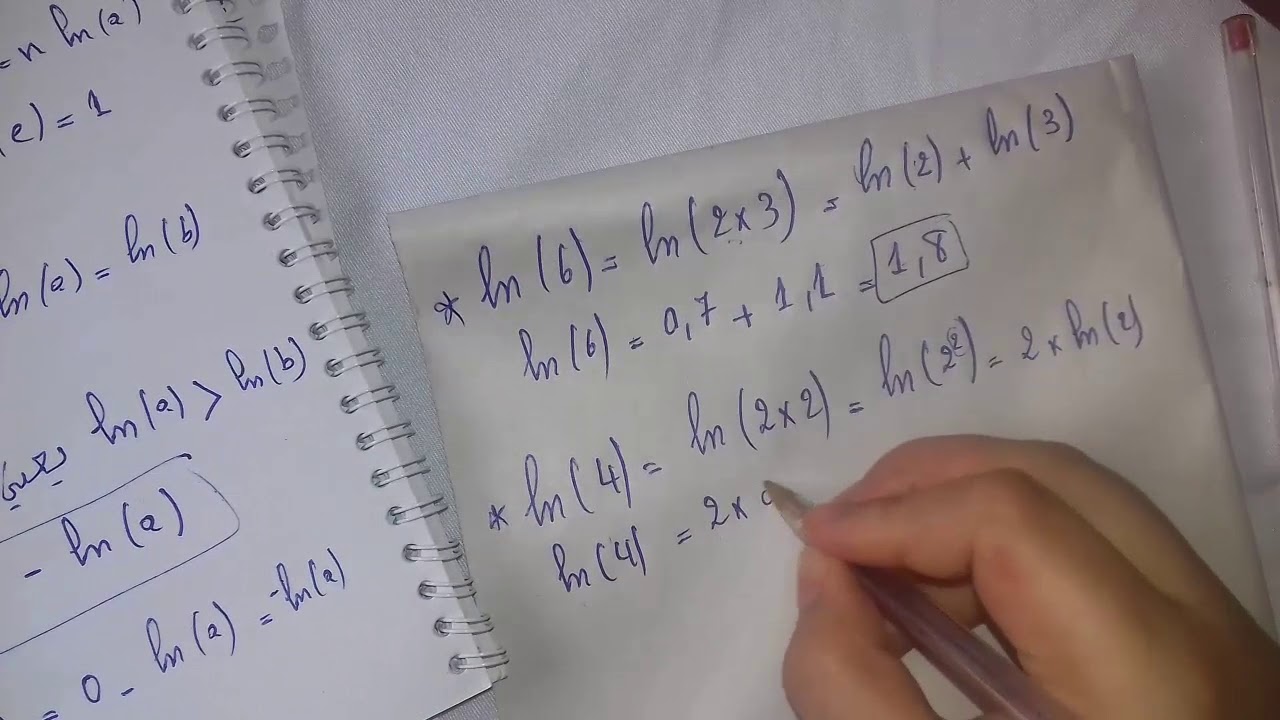 = n ln(a)
(e) = 1
ln(a) = ln(b)
ln(a) > ln(b)
- ln(a)
= 0 - ln(a) = -ln(a)
* ln(6) = ln(2×3) = ln(2) + ln(3)
ln(6) = 0,7 + 1,1 = 1,8
* ln(4) = ln(2×2) = ln(2²) = 2 × ln(2)
ln(4) = 2 ×